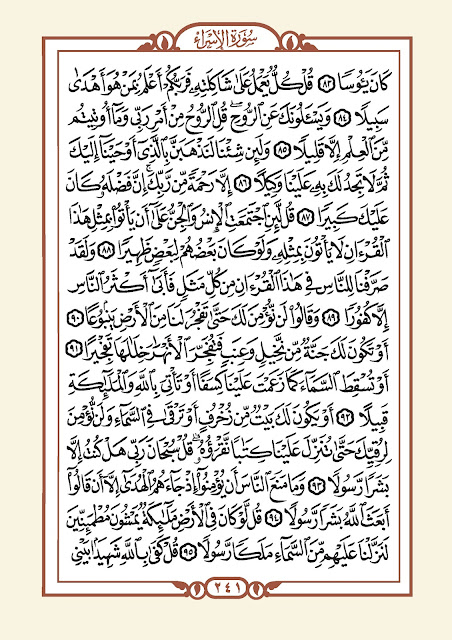 سُورَةُ الإِسْرَاءِ
كَانَ يَـُٔوسًا ٨٣ قُلْ كُلٌّ يَعْمَلُ عَلَىٰ شَاكِلَتِهِۦ فَرَبُّكُمْ أَعْلَمُ بِمَنْ هُوَ أَهْدَىٰ
سَبِيلًا ٨٤ وَيَسْـَٔلُونَكَ عَنِ ٱلرُّوحِ ۖ قُلِ ٱلرُّوحُ مِنْ أَمْرِ رَبِّى وَمَآ أُوتِيتُم
مِّنَ ٱلْعِلْمِ إِلَّا قَلِيلًا ٨٥ وَلَئِن شِئْنَا لَنَذْهَبَنَّ بِٱلَّذِىٓ أَوْحَيْنَآ إِلَيْكَ
ثُمَّ لَا تَجِدُ لَكَ بِهِۦ عَلَيْنَا وَكِيلًا ٨٦ إِلَّا رَحْمَةً مِّن رَّبِّكَ ۚ إِنَّ فَضْلَهُۥ كَانَ
عَلَيْكَ كَبِيرًا ٨٧ قُل لَّئِنِ ٱجْتَمَعَتِ ٱلْإِنسُ وَٱلْجِنُّ عَلَىٰٓ أَن يَأْتُوا۟ بِمِثْلِ هَٰذَا
ٱلْقُرْءَانِ لَا يَأْتُونَ بِمِثْلِهِۦ وَلَوْ كَانَ بَعْضُهُمْ لِبَعْضٍ ظَهِيرًا ٨٨ وَلَقَدْ
صَرَّفْنَا لِلنَّاسِ فِى هَٰذَا ٱلْقُرْءَانِ مِن كُلِّ مَثَلٍ فَأَبَىٰٓ أَكْثَرُ ٱلنَّاسِ
إِلَّا كُفُورًا ٨٩ وَقَالُوا۟ لَن نُّؤْمِنَ لَكَ حَتَّىٰ تَفْجُرَ لَنَا مِنَ ٱلْأَرْضِ يَنۢبُوعًا ٩٠
أَوْ تَكُونَ لَكَ جَنَّةٌ مِّن نَّخِيلٍ وَعِنَبٍ فَتُفَجِّرَ ٱلْأَنْهَٰرَ خِلَٰلَهَا تَفْجِيرًا ٩١
أَوْ تُسْقِطَ ٱلسَّمَآءَ كَمَا زَعَمْتَ عَلَيْنَا كِسَفًا أَوْ تَأْتِىَ بِٱللَّهِ وَٱلْمَلَٰٓئِكَةِ
قَبِيلًا ٩٢ أَوْ يَكُونَ لَكَ بَيْتٌ مِّن زُخْرُفٍ أَوْ تَرْقَىٰ فِى ٱلسَّمَآءِ وَلَن نُّؤْمِنَ
لِرُقِيِّكَ حَتَّىٰ تُنَزِّلَ عَلَيْنَا كِتَٰبًا نَّقْرَؤُهُۥ ۗ قُلْ سُبْحَانَ رَبِّى هَلْ كُنتُ إِلَّا
بَشَرًا رَّسُولًا ٩٣ وَمَا مَنَعَ ٱلنَّاسَ أَن يُؤْمِنُوٓا۟ إِذْ جَآءَهُمُ ٱلْهُدَىٰٓ إِلَّآ أَن قَالُوٓا۟
أَبَعَثَ ٱللَّهُ بَشَرًا رَّسُولًا ٩٤ قُل لَّوْ كَانَ فِى ٱلْأَرْضِ مَلَٰٓئِكَةٌ يَمْشُونَ مُطْمَئِنِّينَ
لَنَزَّلْنَا عَلَيْهِم مِّنَ ٱلسَّمَآءِ مَلَكًا رَّسُولًا ٩٥ قُلْ كَفَىٰ بِٱللَّهِ شَهِيدًۢا بَيْنِى
٢٤١